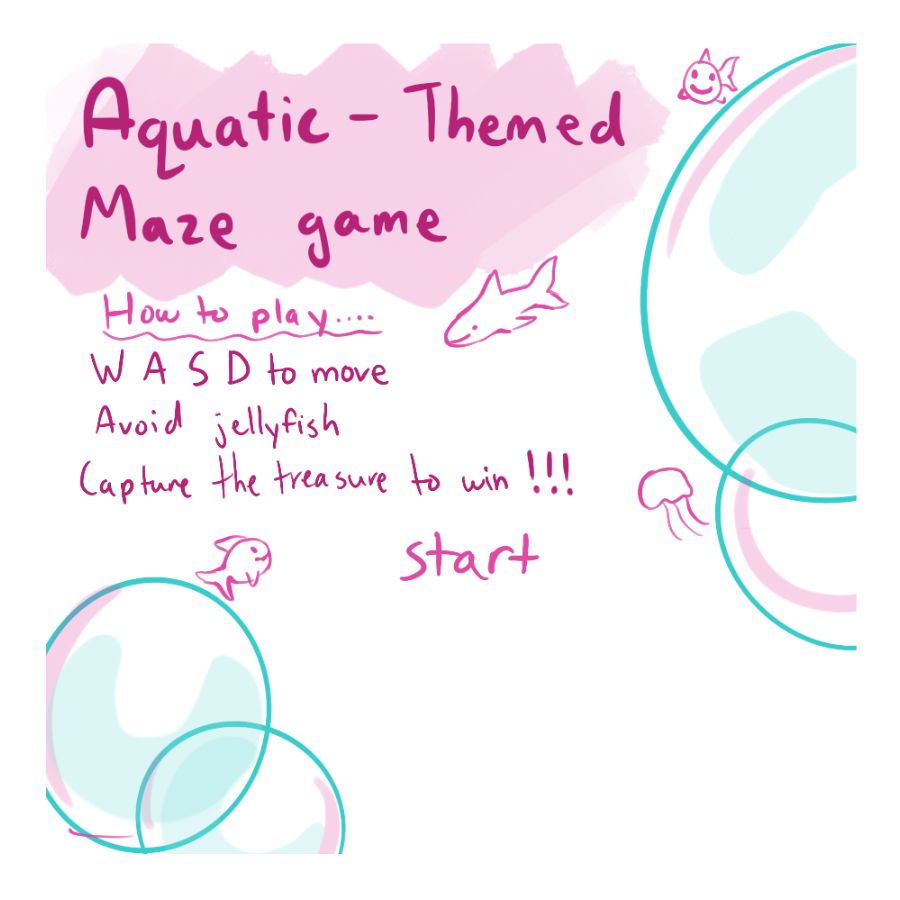 Aquatic - Themed
Maze game
How to play....
W A S D to move
Avoid jellyfish
Capture the treasure to win !!!
start